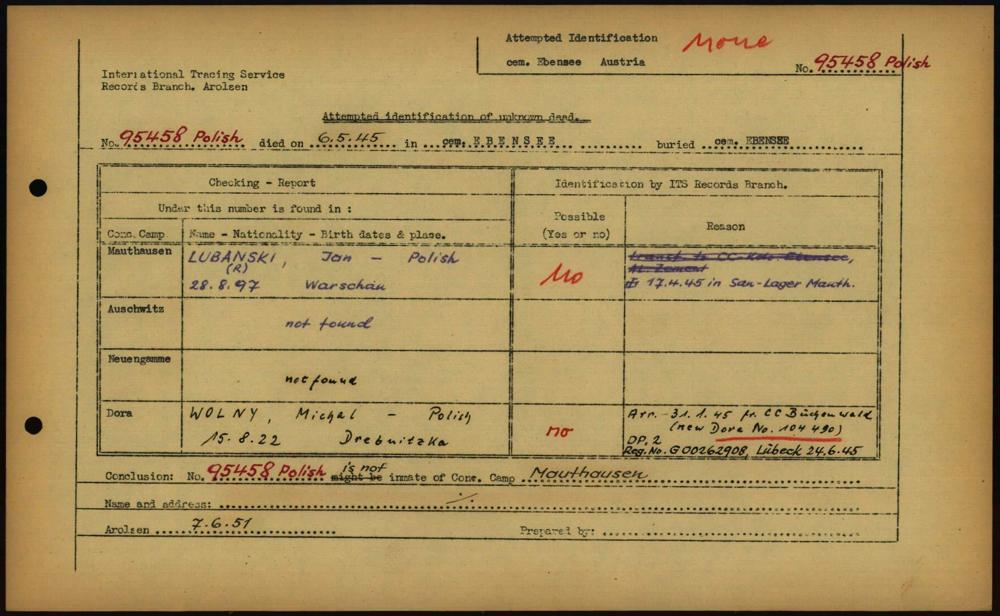 Attempted Identification
None
cem. Ebensee Austria
No. 95458 Polish
International Tracing Service
Records Branch. Arolsen
Attempted identification of unknown dead.
No. 95458 Polish died on 6.5.45 in cem. EBENSEE buried cem. EBENSEE
Checking - Report
Identification by ITS Records Branch.
Under this number is found in :
Possible
(Yes or no)
Reason
Conc. Camp
Name - Nationality - Birth dates & place.
Mauthausen
LUBANSKI, Jan - Polish
(R)
28.8.97 Warschau
No
transf. to CC-Kdo. Ebensee,
Al. Zement
17.4.45 in San-Lager Mauth.
Auschwitz
not found
Neuengamme
not found
Dora
WOLNY, Michal - Polish
15.8.22 Drebnitzka
no
Arr. - 31.1.45 fr. CC Buchenwald
(new Dora No. 104490)
DP. 2
Reg. No. G00262908, Lübeck 24.6.45
Conclusion: No. 95458 Polish might be is not inmate of Conc. Camp Mauthausen
Name and address:
Arolsen 7.6.51
Prepared by: